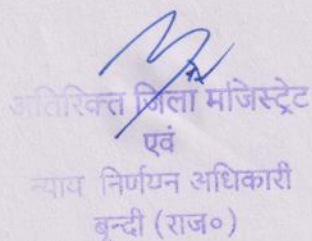 अतिरिक्त जिला मजिस्ट्रेट
एवं
न्याय निर्णयन अधिकारी
बून्दी (राज०)